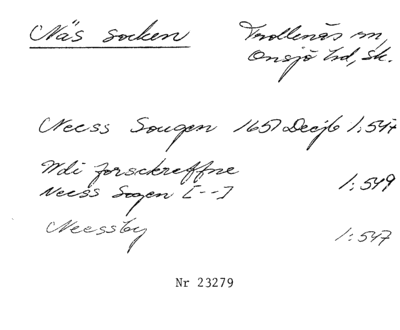 Näs socken
Trollenäs sn,
Onsjö hd, Sk.
Neess Sougen 1651 Decjb 1:547
Wdi forsckreffne
Neess Sogen [--] 1:549
Neessby 1:547
Nr 23279